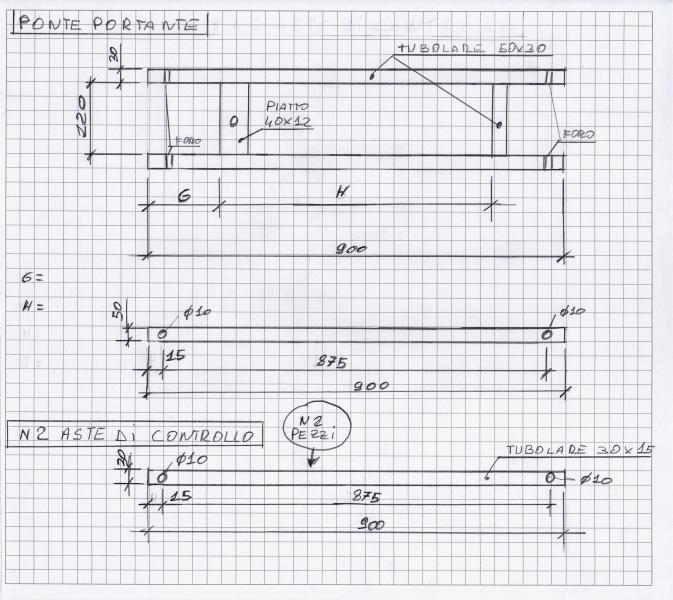 PONTE PORTANTE
30
TUBOLARE 50X30
220
PIATTO
40X12
FORO
FORO
G
H
900
G=
H=
50
Ø10
Ø10
15
875
900
N2 ASTE Di CONTROLLO
N2
PEZZi
TUBOLARE 30X15
30
Ø10
Ø10
15
875
900